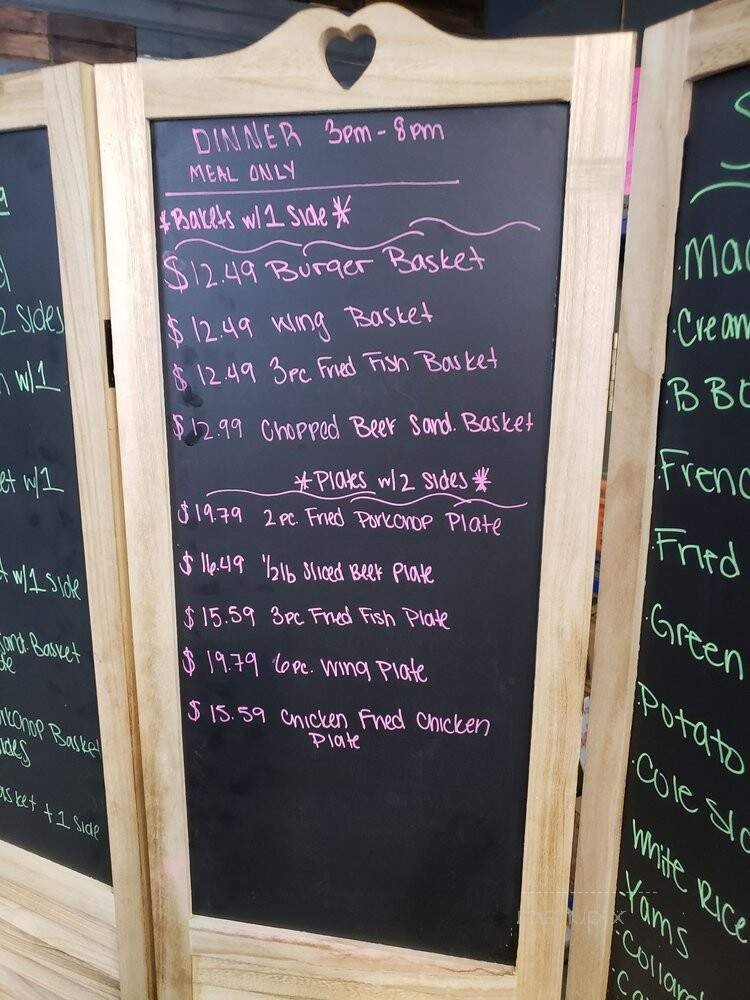 DINNER 3pm - 8pm
MEAL ONLY
*Bakets w/1 side*
$12.49 Burger Basket
$12.49 wing Basket
$12.49 3pc Fried Fish Basket
$12.99 Chopped Beef Sand. Basket
*Plates w/2 sides*
$19.79 2pc. Fried Porkchop Plate
$16.49 1/2lb Sliced Beef Plate
$15.59 3pc Fried Fish Plate
$19.79 6pc. Wing Plate
$15.59 Chicken Fried Chicken
Plate
2 sides
w/1
w/1
w/1 side
Sand. Basket
+ 1 side
Fried
Green
Potato
Cole
White Rice
Yams